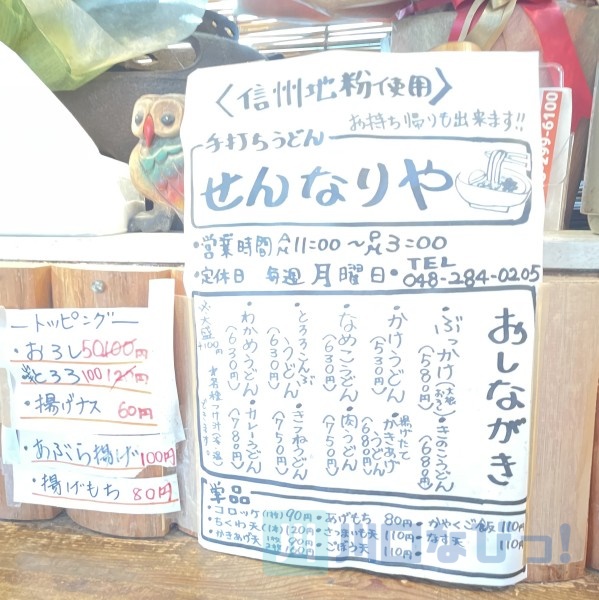 〈信州地粉使用〉
お持ち帰りも出来ます!!
手打ちうどん
せんなりや
・営業時間 AM11:00〜PM3:00
・定休日 毎週月曜日・TEL 048-284-0205
おしながき
・ぶっかけ(大根おろし)(580円)
・きのこうどん(680円)
・かけうどん(530円)
・揚げたてかきあげうどん(680円)
・なめこうどん(630円)
・肉うどん(750円)
・とろろこんぶうどん(630円)
・きつねうどん(750円)
・わかめうどん(630円)
・カレーうどん(780円)
※大盛+100円
単品
・コロッケ(1枚)90円・あげもち 80円・かやくご飯 110円
・ちくわ天(1本)120円・さつまいも天 110円・なす天 110円
・かきあげ天 ・ごぼう天 110円
ートッピングー
・おろし50円
とろろ100
・揚げナス 60円
・あぶら揚げ100円
・揚げもち 80円
299-6100